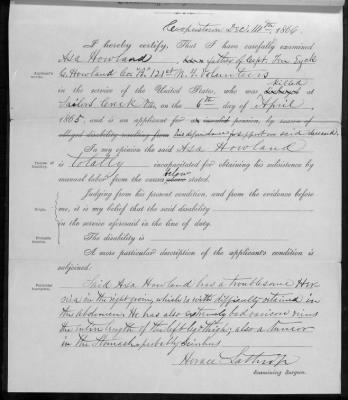 Cooperstown Dec. 10th, 1866
I hereby certify, That I have carefully examined
Asa Howland father of Capt. Ten Eyck
G. Howland Co. 121st N.Y. Volunteers
killed
in the service of the United States, who was at
Sailors Creek Va. on the 6th day of April
1865, and is an applicant for an invalid pension, by reason of
alleged disability resulting from his dependence for support on said deceased.
In my opinion the said Asa Howland
is totally incapacitated for obtaining his subsistence by
below
manual labor from the cause above stated.
Judging from his present condition, and from the evidence before
me, it is my belief that the said disability
in the service aforesaid in the line of duty.
The disability is
A more particular description of the applicant's condition is
subjoined:
Said Asa Howland has a troublesome Her
nia in the right groin, which is with difficulty retained in
the abdomen. He has also extremely bad varicose veins
the entire length of the left leg & thigh; also a tumor
in the Stomach, probably Scirrhus
Horace Lathrop
Examining Surgeon.